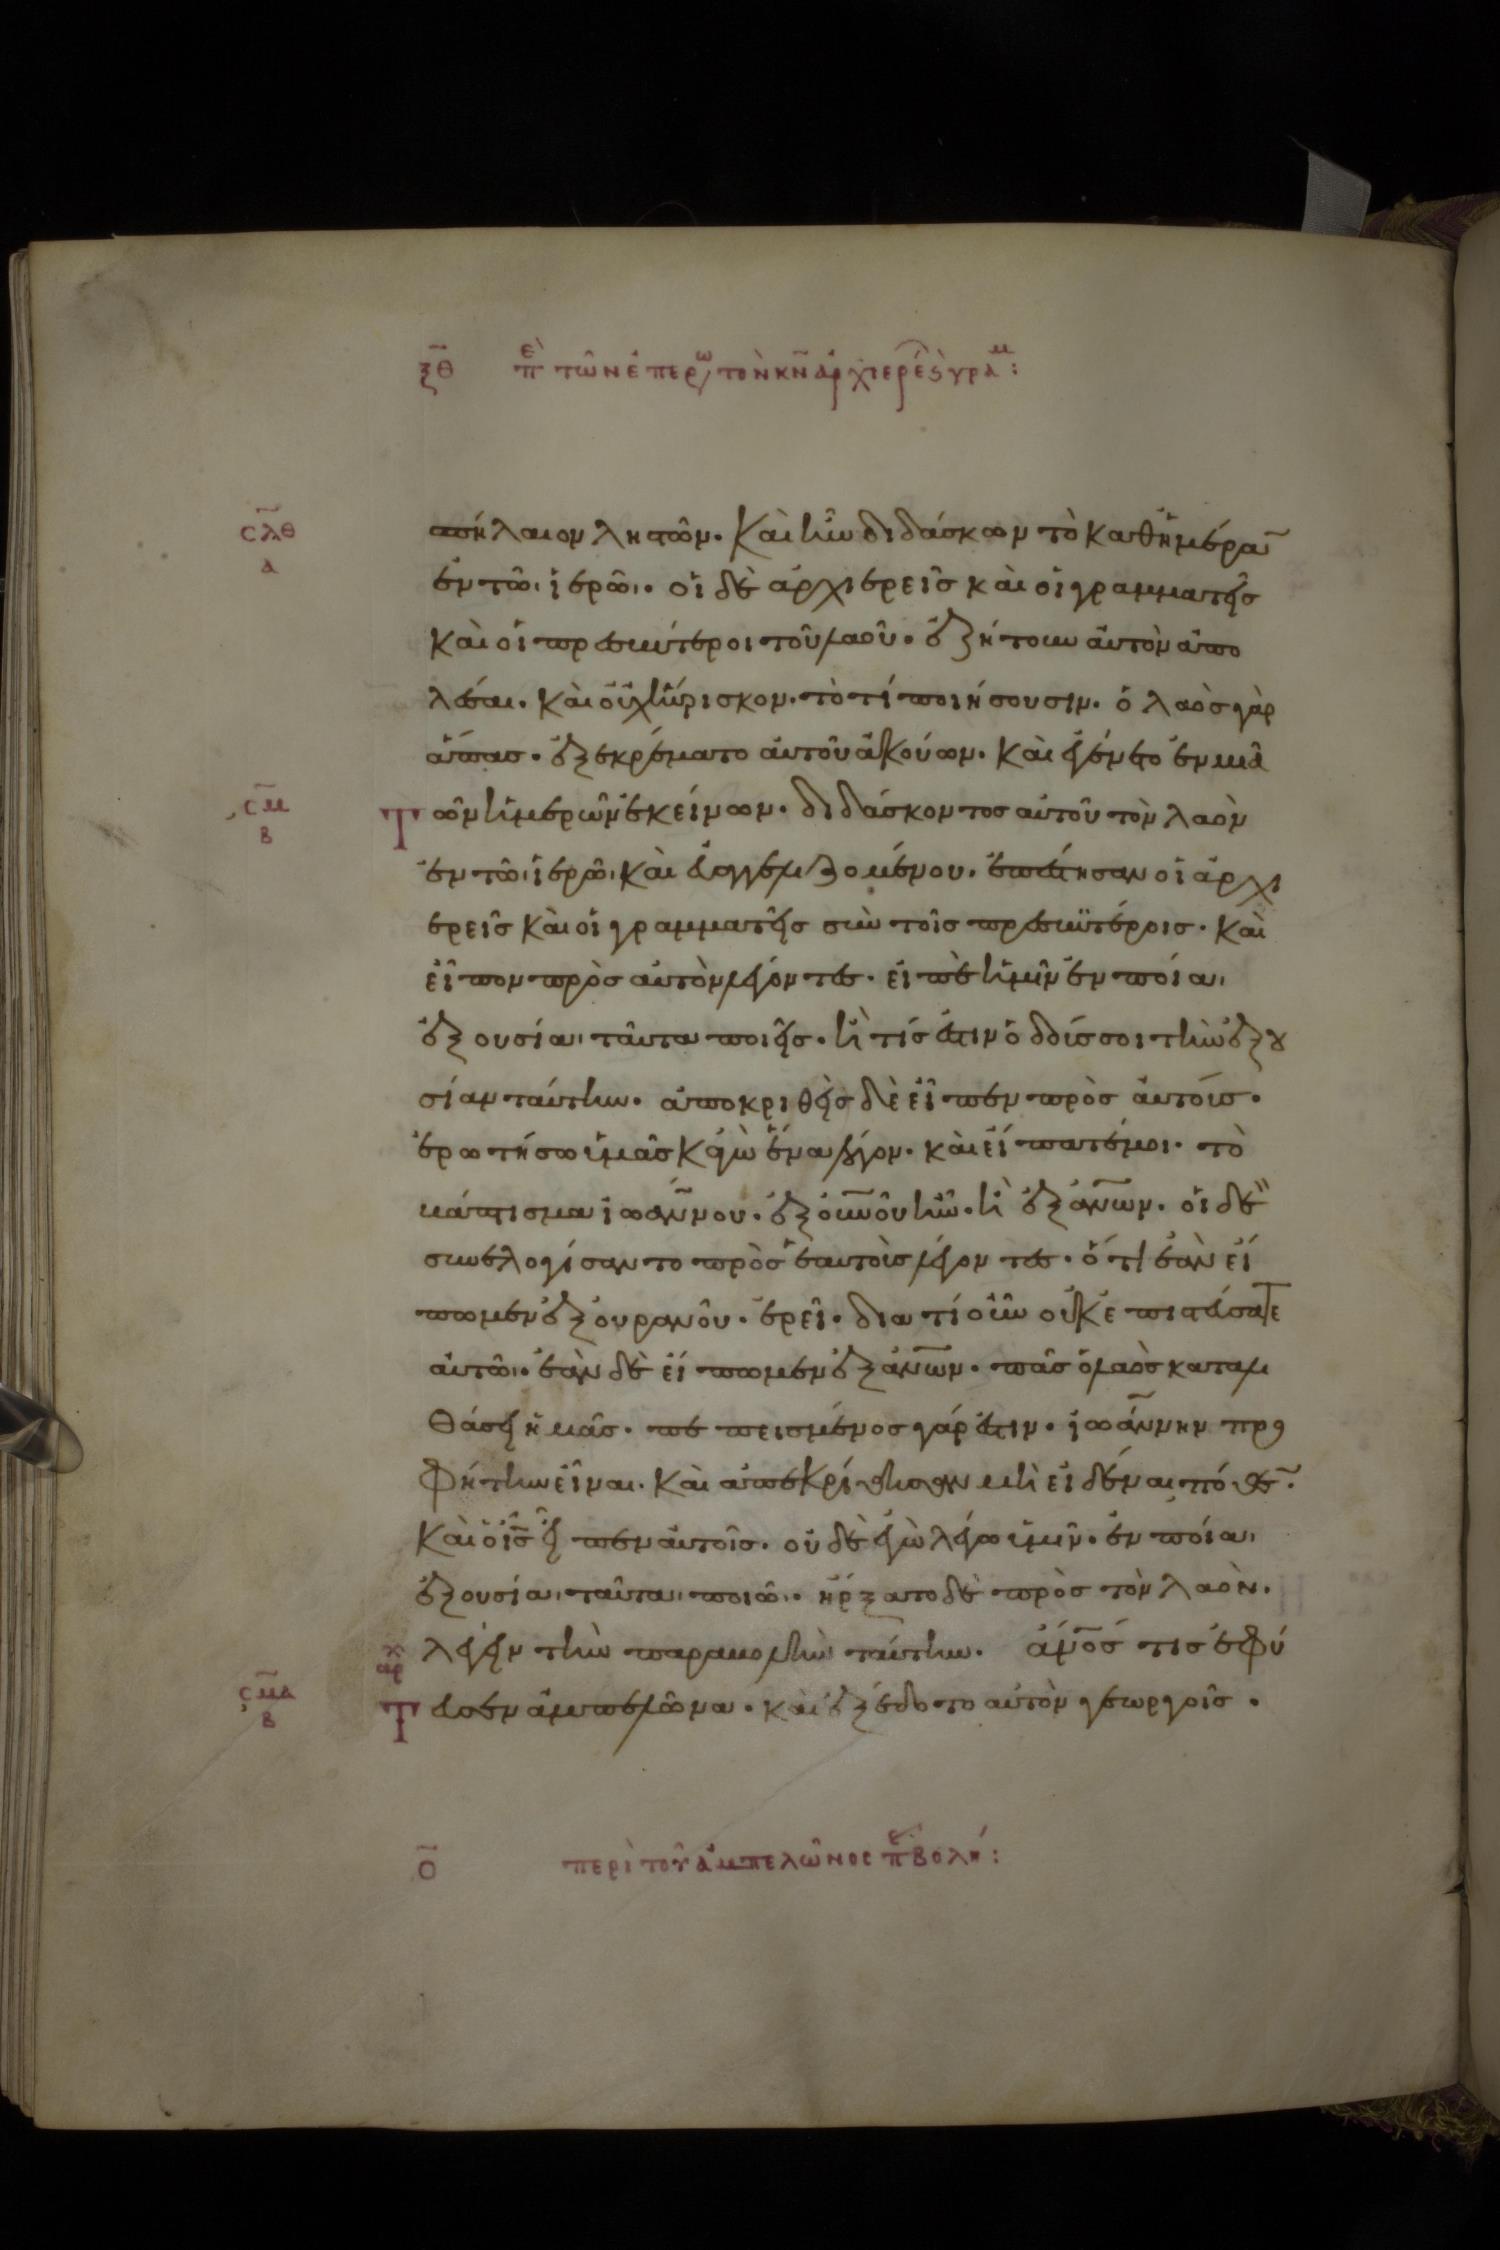 ξθ πε τῶν ἐπερω τὸν κν ἀρχιερε ς γραμ:
σλθ α
πήλαιον ληστῶν. Καὶ ἦν διδάσκων τὸ καθ' ἡμέραν
ἐν τῶ ἱερῶ. οἱ δὲ ἀρχιερεῖς καὶ οἱ γραμματεῖς
καὶ οἱ πρεσβύτεροι τοῦ λαοῦ. ἐζήτουν αὐτὸν ἀπο
λέσαι. καὶ οὐχ ηὕρισκον. τὸ τί ποιήσουσιν. ὁ λαὸς γὰρ
ἅπας. ἐξεκρέματο αὐτοῦ ἀκούων. καὶ ἐγένετο ἐν μιᾶ
σμ β
Τῶν ἡμερῶν ἐκείνων. διδάσκοντος αὐτοῦ τὸν λαὸν
ἐν τῶ ἱερῶ καὶ εὐαγγελιζομένου. ἐπέστησαν οἱ ἀρχι
ερεῖς καὶ οἱ γραμματεῖς σὺν τοῖς πρεσβυτέροις. καὶ
εἶπον πρὸς αὐτὸν λέγοντες. εἰπὲ ἡμῖν ἐν ποία
ἐξουσία ταῦτα ποιεῖς. ἢ τίς ἐστιν ὁ δούς σοι τὴν ἐξου
σίαν ταύτην. ἀποκριθεὶς δὲ εἶπεν πρὸς αὐτούς.
ἐρωτήσω ὑμᾶς κἀγὼ ἕνα λόγον. καὶ εἴπατέ μοι. τὸ
βάπτισμα ἰωάννου. ἐξ οὐνοῦ ἦν. ἢ ἐξ ἀνων. οἱ δὲ
συνελογίσαντο πρὸς ἑαυτοὺς λέγοντες. ὅτι ἐὰν εἴ
πωμεν ἐξ οὐρανοῦ. ἐρεῖ. διατί οὖν οὐκ ἐπιστεύσατε
αὐτῶ. ἐὰν δὲ εἴπωμεν ἐξ ἀνων. πᾶς ὁ λαὸς καταλι
θάσει ἡμᾶς. πεπεισμένος γάρ ἐστιν. ἰωάννην προ
φήτην εἶναι. καὶ ἀπεκρίθησαν μὴ εἰδέναι πόθεν.
καὶ ὁ ις εἶπεν αὐτοῖς. οὐδὲ ἐγὼ λέγω ὑμῖν. ἐν ποία
ἐξουσία ταῦτα ποιῶ. ἤρξατο δὲ πρὸς τὸν λαὸν.
αρχ
λέγειν τὴν παραβολὴν ταύτην. ἀνος τις ἐφύ
σμα β
Τευσεν ἀμπελῶνα. καὶ ἐξέδοτο αὐτὸν γεωργοῖς.
ο περὶ τοῦ ἀμπελῶνος πβολή: